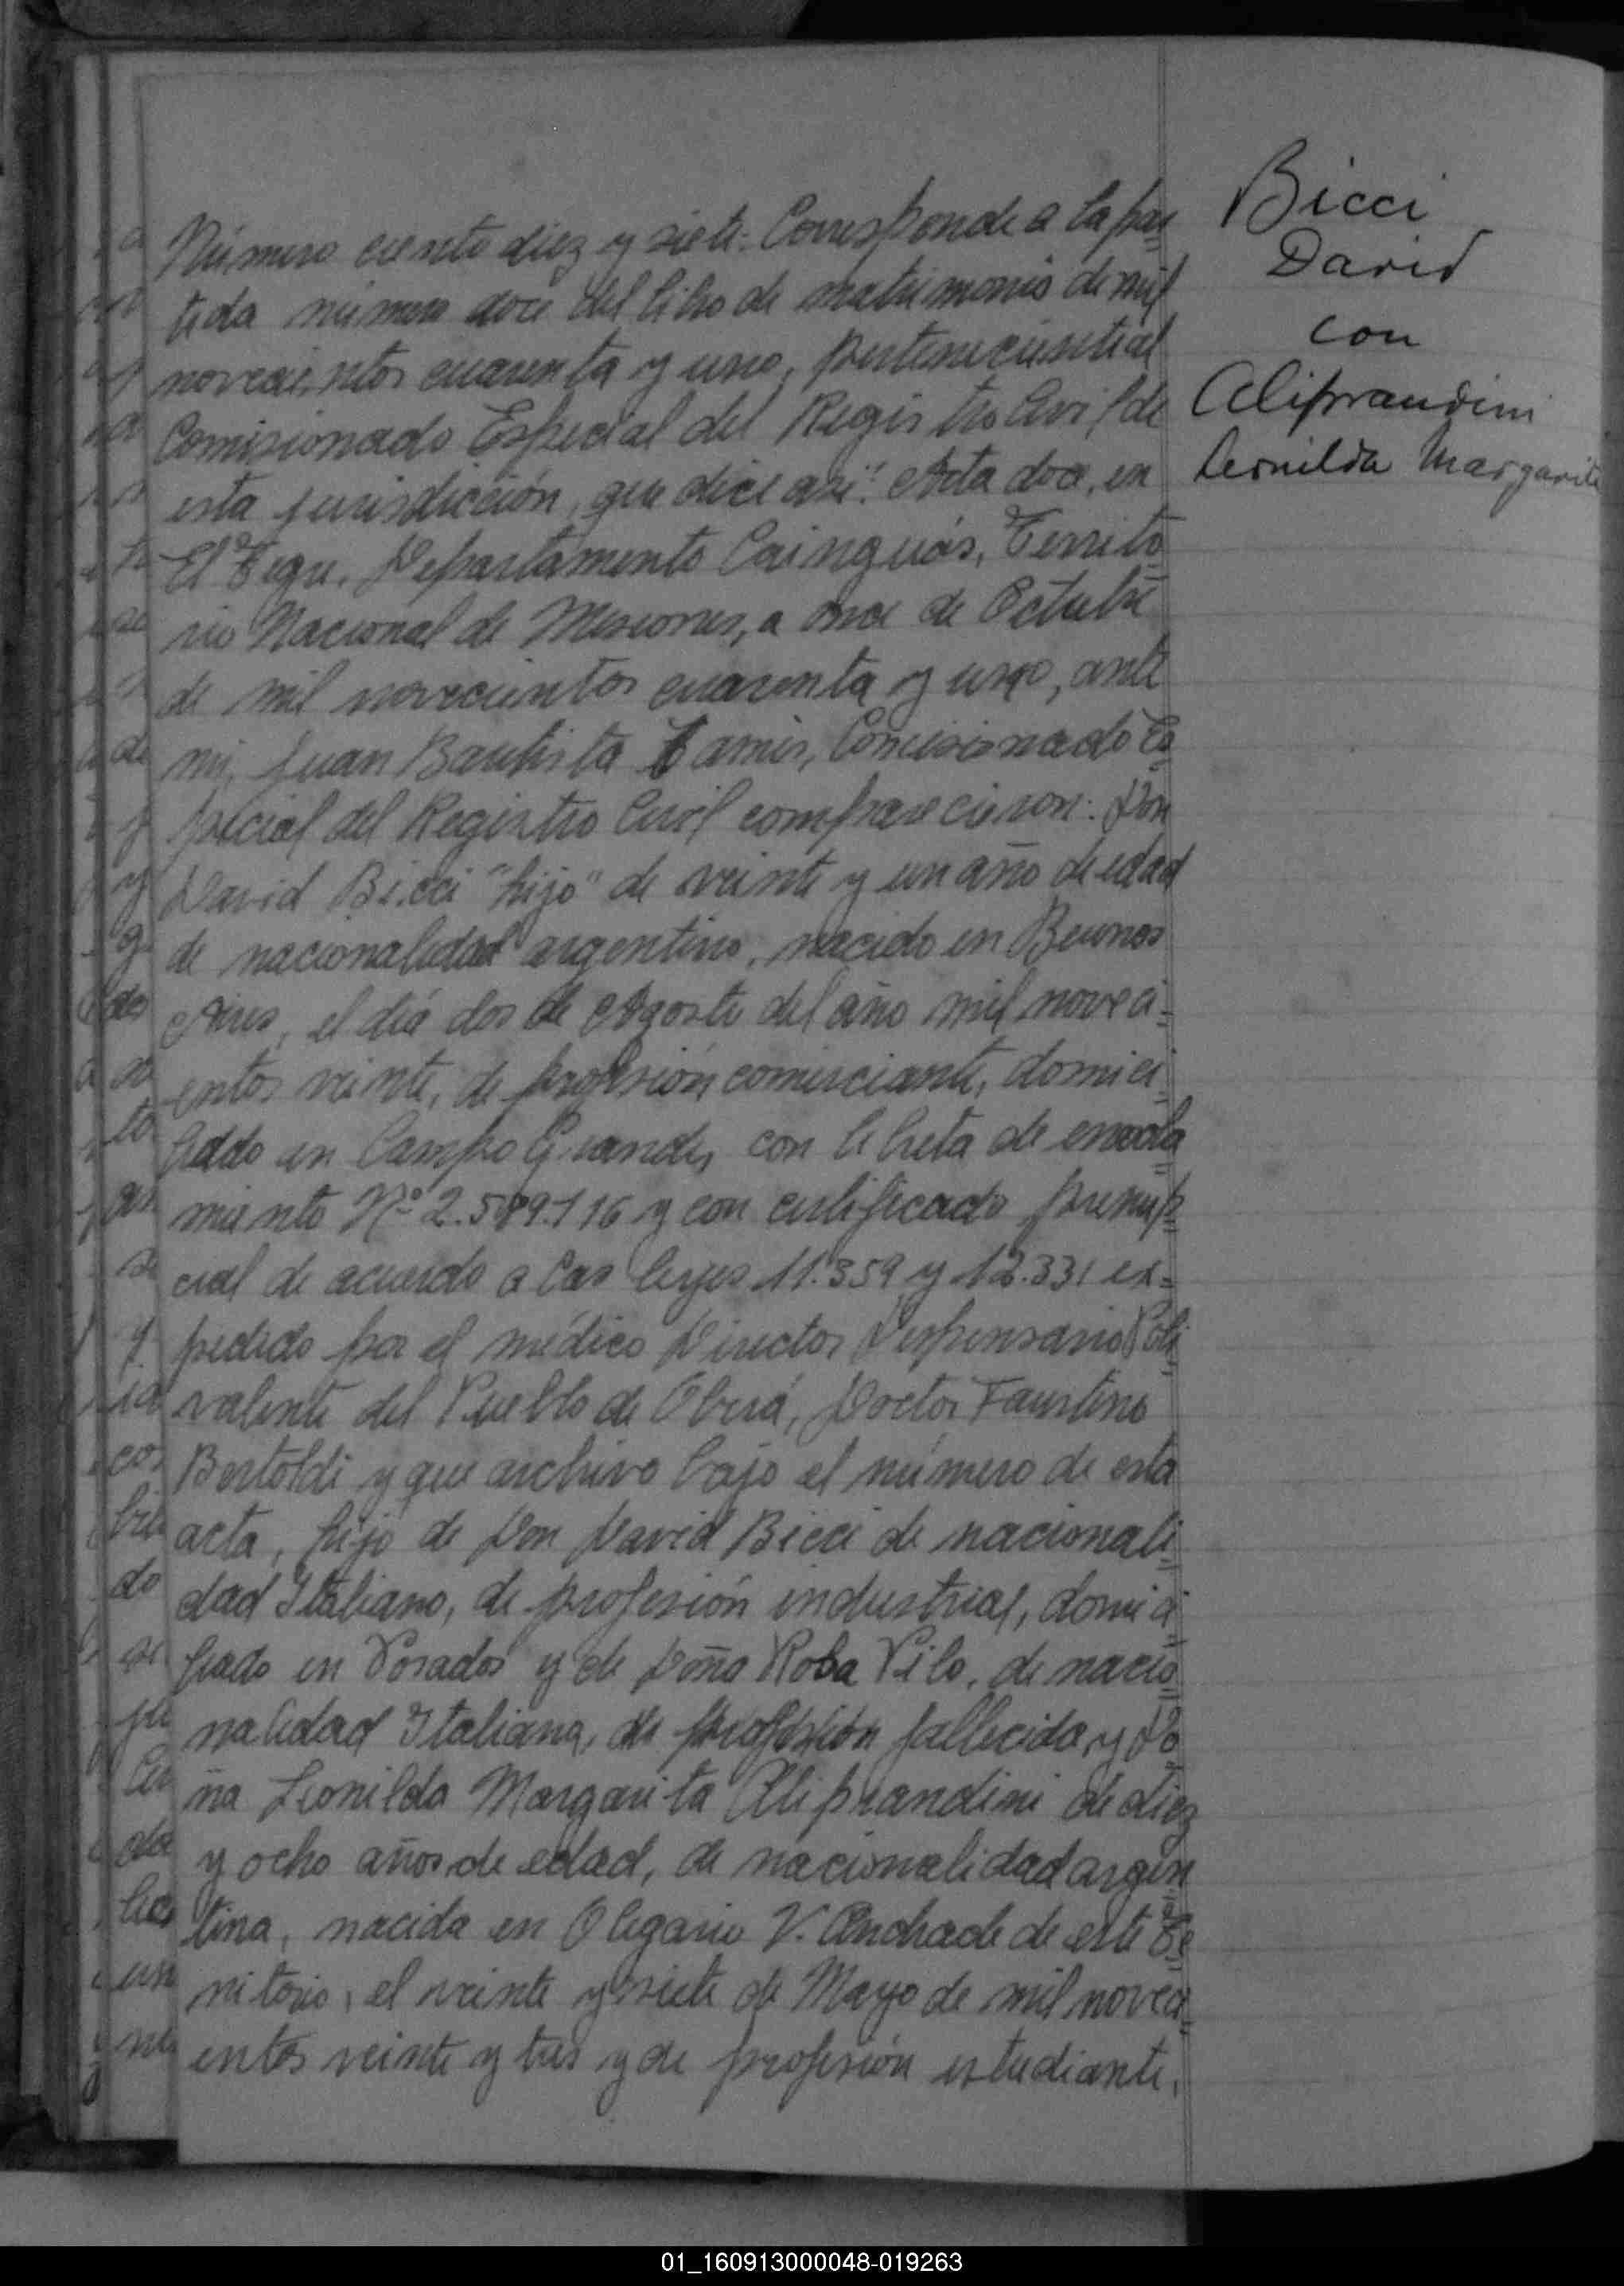 Número ciento diez y siete. Corresponde a la par=
tida número doce del libro de matrimonio de mil
novecientos cuarenta y uno, perteneciente al
Comisionado Especial del Registro Civil de
esta jurisdicción, que dice asi: "Acta doce, en
El Tigre, Departamento Cainguás, Territo=
rio Nacional de Misiones, a once de Octubre
de mil novecientos cuarenta y uno, ante
mi, Juan Bautista Comisionado Es=
pecial del Registro Civil comparecieron: Don
David Bicci "hijo" de veinte y un año de edad
de nacionalidad argentino, nacido en Beunos
Aires, el día dos de Agosto del año mil noveci=
entos veinte, de profesión comerciante, domici=
liado en Campo Grande, con libreta de enrola=
miento Nº 2.589.116 y con certificado prenup=
cial de acuerdo a las leyes 11.359 y 12.331 ex=
pedido por el médico Director Dispensario Poli=
valente del Pueblo de Oberá, Doctor Faustino
Bertoldi y que archivo bajo el número de esta
acta, hijo de Don David Bicci de nacionali=
dad Italiano, de profesión industrial, domici=
liado en Posadas y de Doña Rosa de nacio=
nalidad Italiana, de profesión fallecida, y Do=
ña Leonilda Margarita Aliprandini de diez
y ocho años de edad, de nacionalidad argen=
tina, nacida en Olegario V. Andrade de este Te=
rritorio, el veinte y siete de Mayo de mil noveci=
entos veinte y tres y de profesión estudiante,
Bicci
David
con
Aliprandini
Leonilda Margarita
01_160913000048-019263